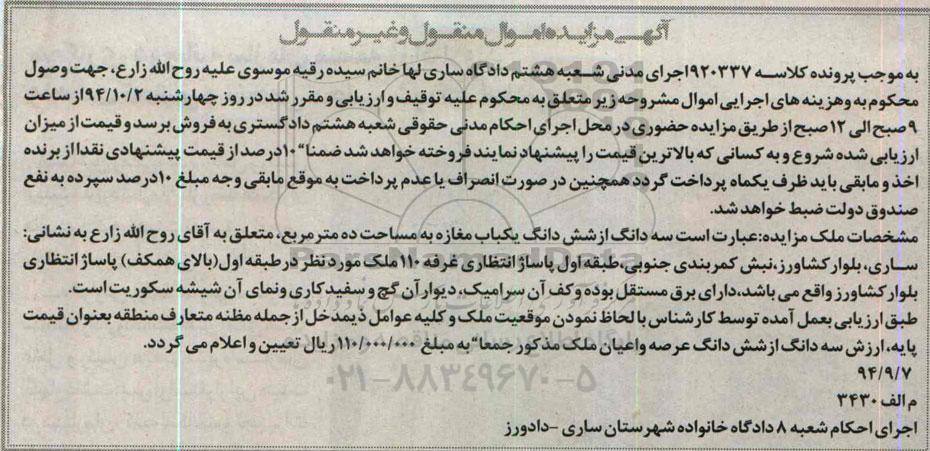 آگهی مزایده اموال منقول و غیر منقول
به موجب پرونده کلاسه ۹۲۰۳۳۷ اجرای مدنی شعبه هشتم دادگاه ساری لها خانم سیده رقیه موسوی علیه روح الله زارع، جهت وصول
محکوم به و هزینه های اجرایی اموال مشروحه زیر متعلق به محکوم علیه توقیف و ارزیابی و مقرر شد در روز چهارشنبه ۹۴/۱۰/۲ از ساعت
۹ صبح الی ۱۲ صبح از طریق مزایده حضوری در محل اجرای احکام مدنی حقوقی شعبه هشتم دادگستری به فروش برسد و قیمت از میزان
ارزیابی شده شروع و به کسانی که بالاترین قیمت را پیشنهاد نمایند فروخته خواهد شد ضمنا" ۱۰درصد از قیمت پیشنهادی نقدا از برنده
اخذ و مابقی باید ظرف یکماه پرداخت گردد همچنین در صورت انصراف یا عدم پرداخت به موقع مابقی وجه مبلغ ۱۰درصد سپرده به نفع
صندوق دولت ضبط خواهد شد.
مشخصات ملک مزایده:عبارت است سه دانگ از شش دانگ یکباب مغازه به مساحت ده متر مربع، متعلق به آقای روح الله زارع به نشانی:
ساری، بلوار کشاورز،نبش کمربندی جنوبی،طبقه اول پاساژ انتظاری غرفه ۱۱۰ ملک مورد نظر در طبقه اول(بالای همکف) پاساژ انتظاری
بلوار کشاورز واقع می باشد،دارای برق مستقل بوده و کف آن سرامیک، دیوار آن گچ و سفید کاری و نمای آن شیشه سکوریت است.
طبق ارزیابی بعمل آمده توسط کارشناس با لحاظ نمودن موقعیت ملک و کلیه عوامل ذیمدخل از جمله مظنه متعارف منطقه بعنوان قیمت
پایه، ارزش سه دانگ از شش دانگ عرصه واعیان ملک مذکور جمعا" به مبلغ ۱۱۰/۰۰۰/۰۰۰ ریال تعیین و اعلام می گردد.
۹۴/۹/۷
۰۲۱-۸۸۳۴۹۶۷۰-۵
م الف ۳۴۳۰
اجرای احکام شعبه ۸ دادگاه خانواده شهرستان ساری -دادورز